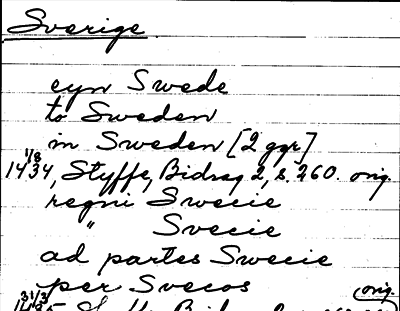 Sverige
eyn Swede
to Sweden
in Sweden [2 ggr]
1/8 1434, Styffe, Bidrag 2, s. 260. orig.
regni Swecie
" Svecie
ad partes Swecie
per Svecos
31/3 orig.